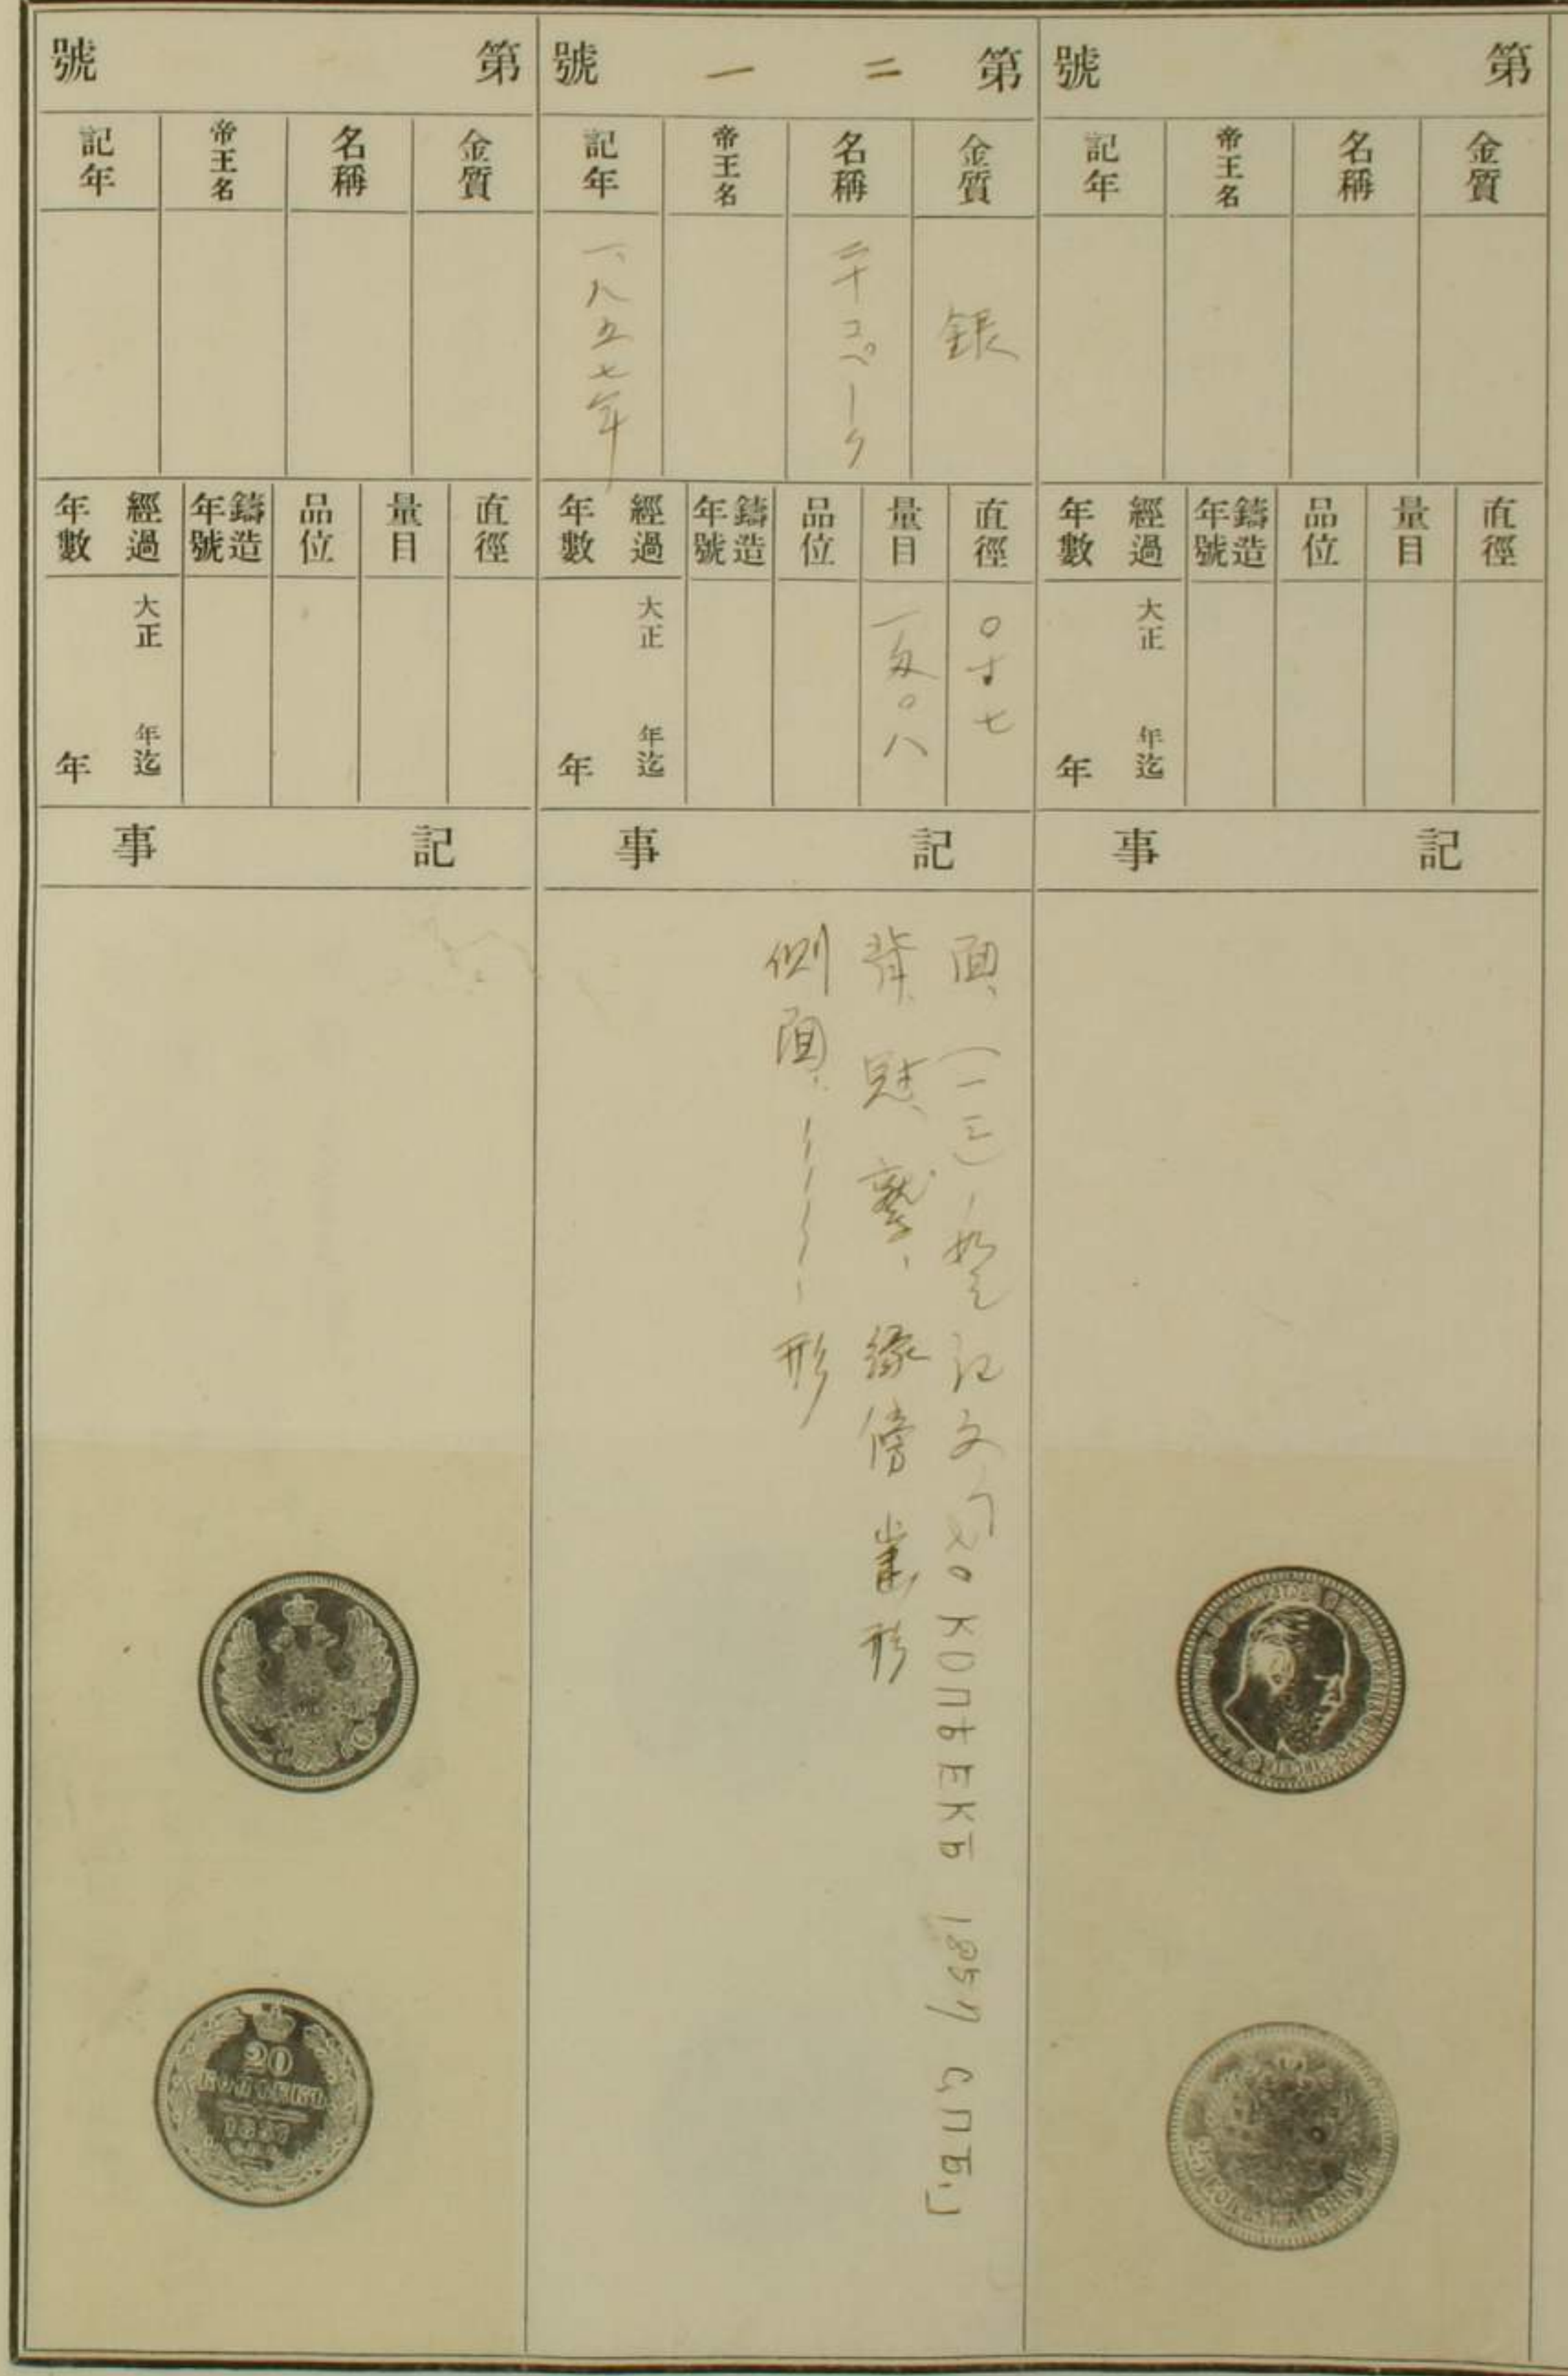 第 號
金質 名稱 帝王名 記年
直徑 量目 品位 鑄造年號 經過年數
大正 年迄 年
記事
25
第二一號
金質 名稱 帝王名 記年
銀
二十コペーク
一、八五七年
直徑 量目 品位 鑄造年號 經過年數
〇寸七
一匁〇八
大正 年迄 年
記事
面、(一三)ノ如ク 記文「20 КОПѢЕКЪ 1857 С,П,Б,」
背、 鷲、緣傍齒形
側面、/////形
第 號
金質 名稱 帝王名 記年
直徑 量目 品位 鑄造年號 經過年數
大正 年迄 年
記事
20
КОПѢЕКЪ
1857